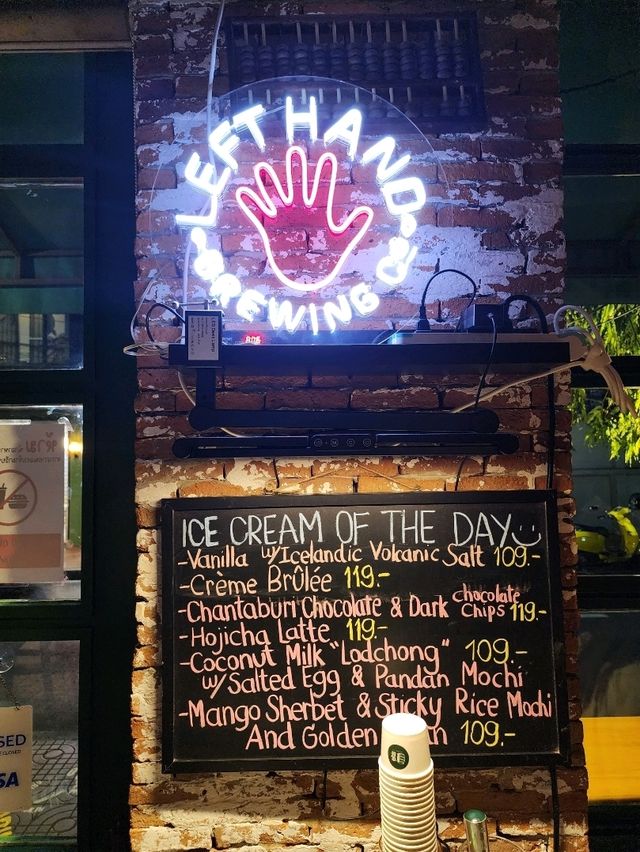 LEFT HAND
BREWING CO
ICE CREAM OF THE DAY
-Vanilla w/ Icelandic Volcanic Salt 109.-
-Crème Brûlée 119.-
-Chantaburi Chocolate & Dark chocolate chips 119.-
-Hojicha Latte 119.-
-Coconut Milk "Lodchong" 109.-
w/ Salted Egg & Pandan Mochi
-Mango Sherbet & Sticky Rice Mochi
And Golden 109.-